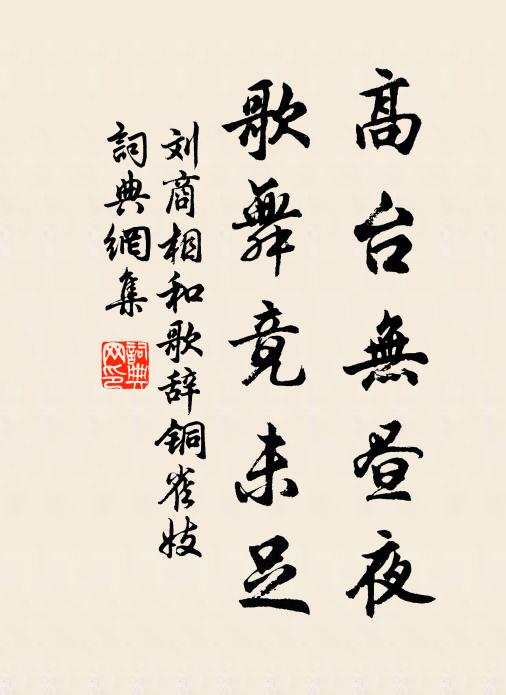 高台無昼夜
歌舞竟未足
刘商相和歌辞铜雀妓
詞典網集
詞典
网印